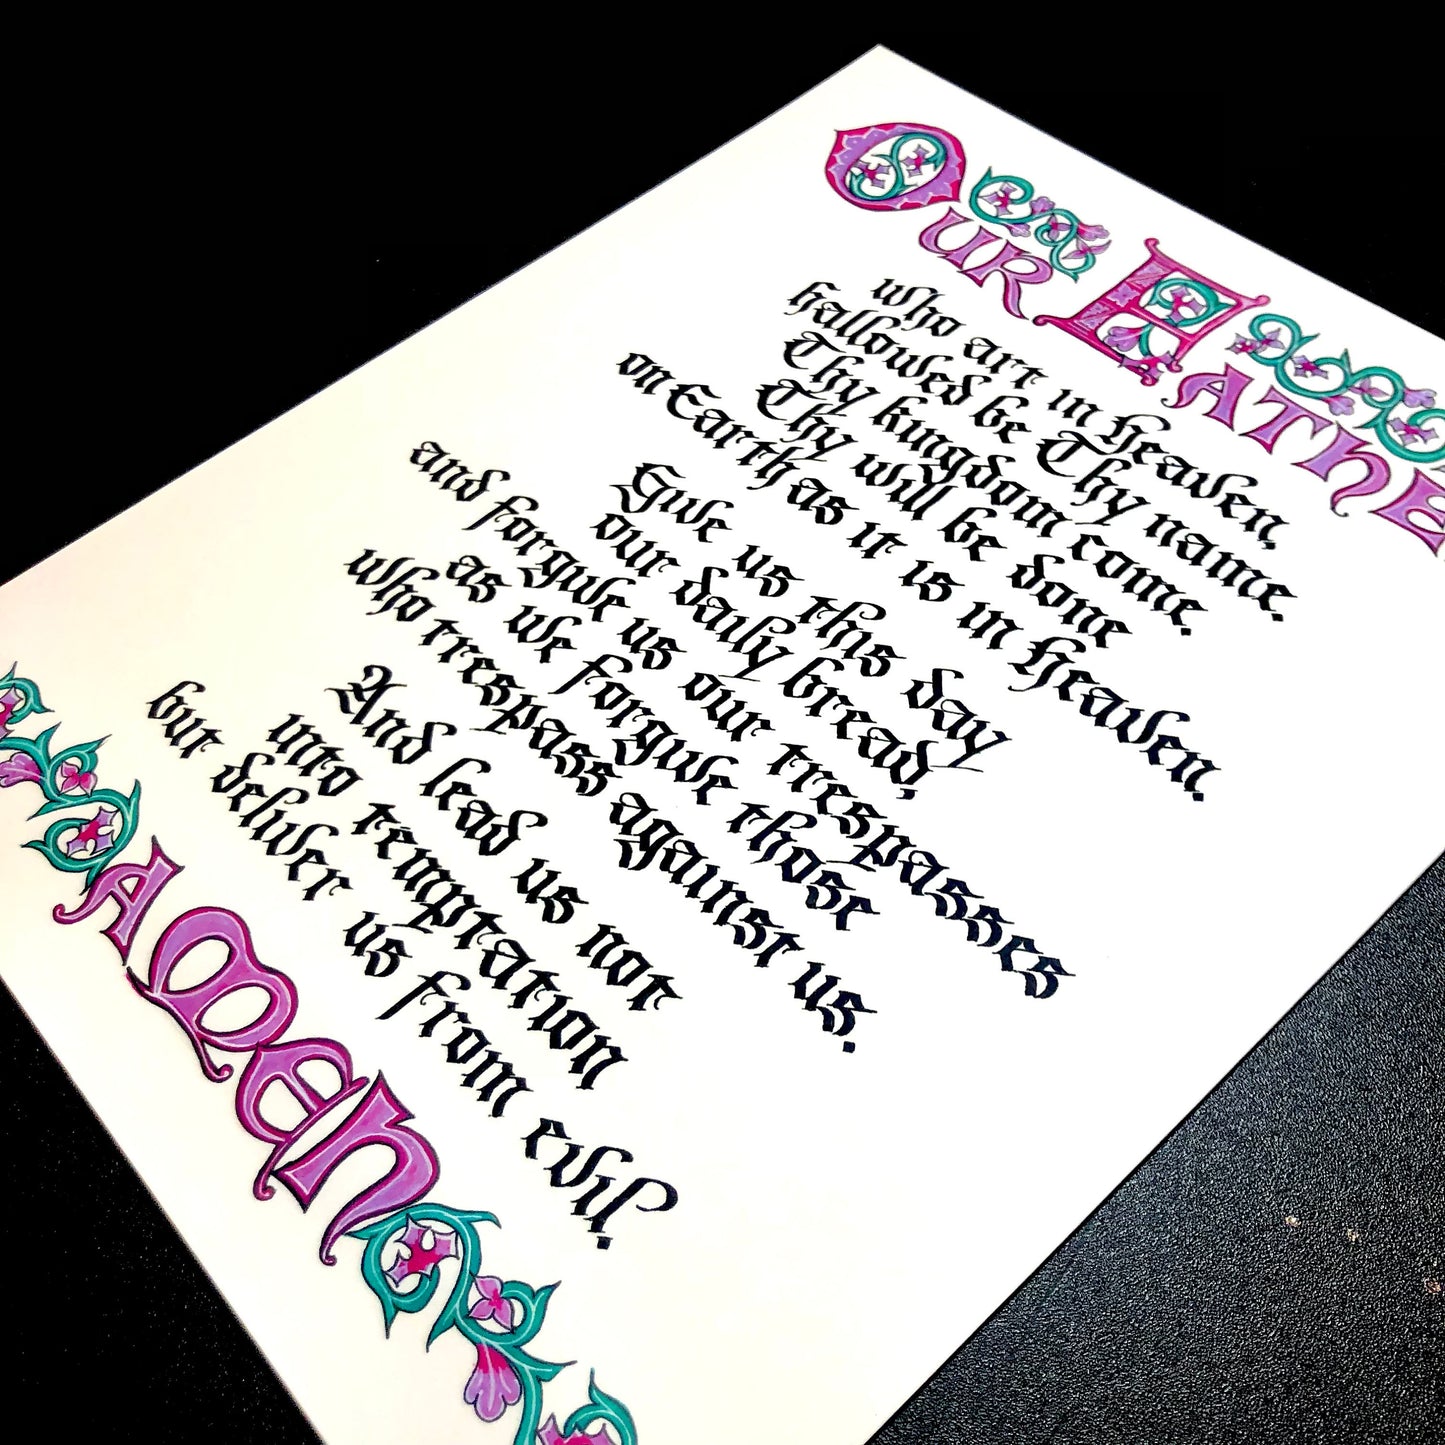 Our Fathe
who art in heaven,
hallowed be Thy name.
Thy kingdom come.
Thy will be done
on Earth as it is in heaven.
Give us this day
our daily bread,
and forgive us our trespasses
as we forgive those
who trespass against us.
And lead us not
into temptation
but deliver us from evil.
Amen